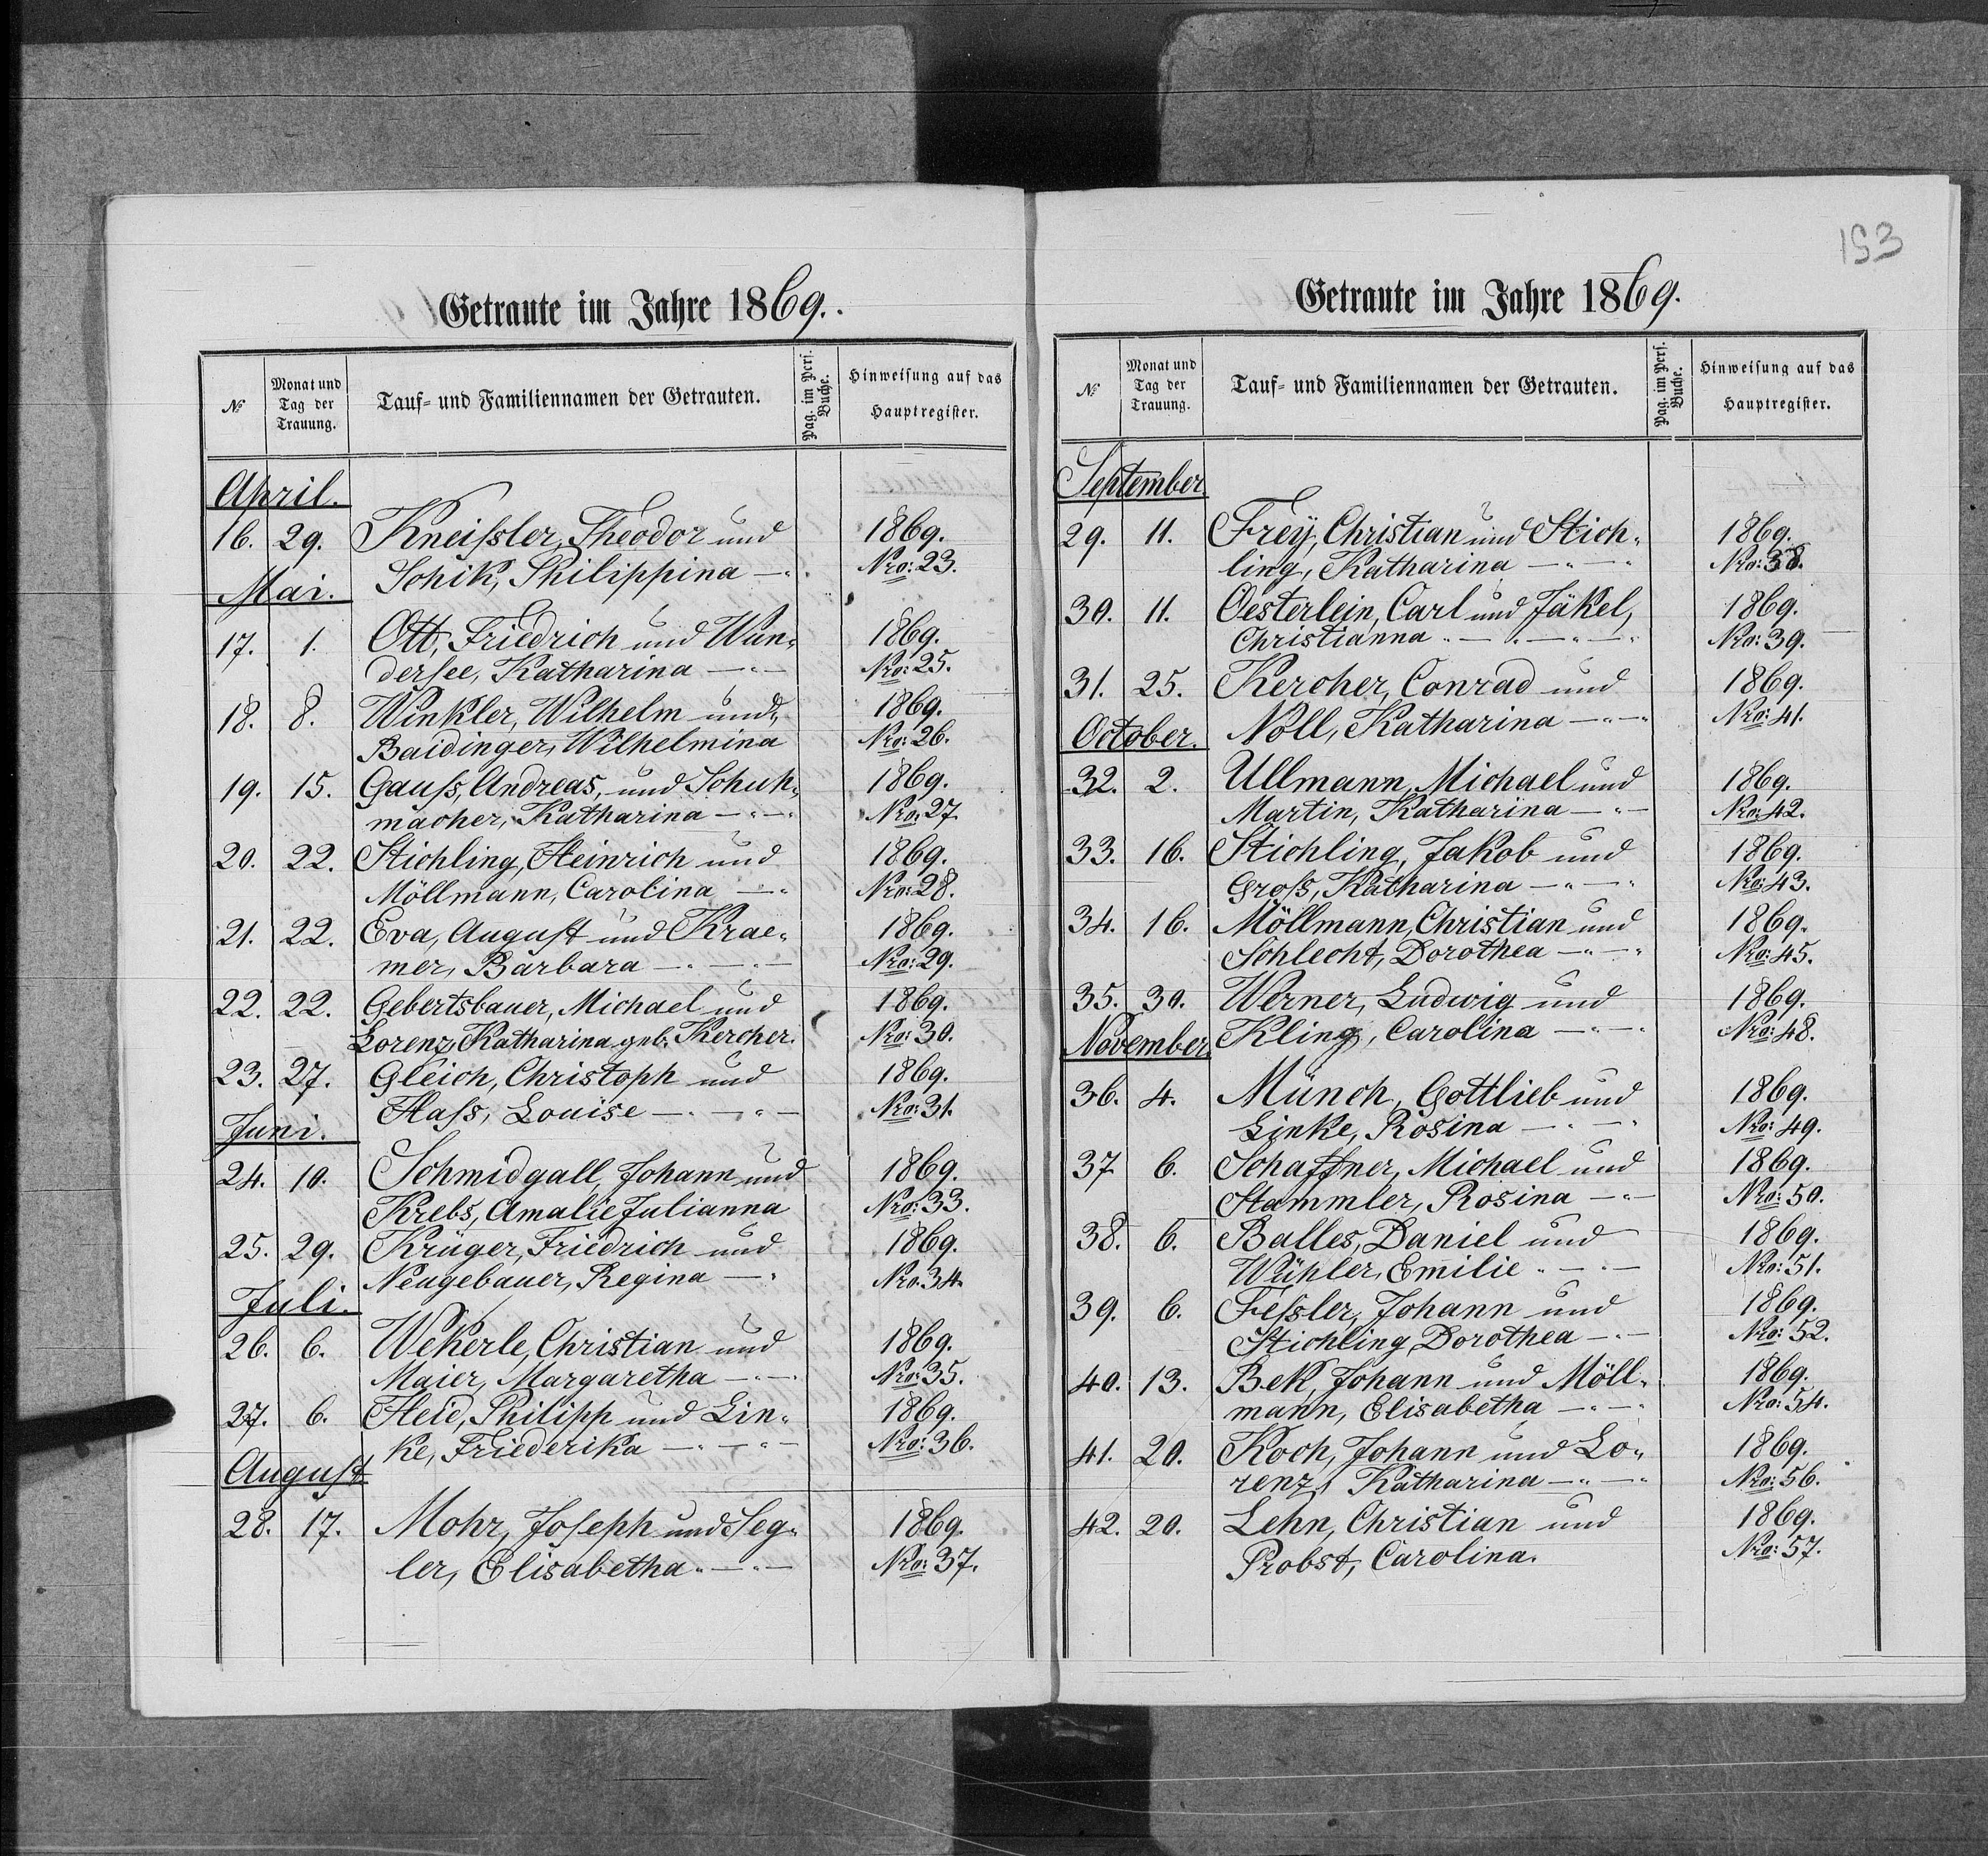 153
Getraute im Jahre 1869.
№ Monat und Tag der Trauung. Tauf- und Familiennamen der Getrauten. Pag. im Pers. Buche. Hinweisung auf das Hauptregister.
April.
16. 29. Kneißler, Theodor und 1869.
Schik, Philippina Nro: 23.
Mai.
17. 1. Ott, Friedrich und Wun- 1869.
dersee, Katharina Nro: 25.
18. 8. Winkler, Wilhelm und 1869.
Baidinger, Wilhelmina Nro: 26.
19. 15. Gauß, Andreas, und Schuh- 1869.
macher, Katharina Nro: 27.
20. 22. Stichling, Heinrich und 1869.
Möllmann, Carolina Nro: 28.
21. 22. Eva, August und Krae- 1869.
mer, Barbara Nro: 29.
22. 22. Gebertsbauer, Michael und 1869.
Lorenz, Katharina geb. Kercher. Nro: 30.
23. 27. Gleich, Christoph und 1869.
Haß, Louise Nro: 31.
Juni.
24. 10. Schmidgall, Johann und 1869.
Krebs, Amalie Julianna Nro: 33.
25. 29. Krüger, Friedrich und 1869.
Neugebauer, Regina Nro: 34.
Juli.
26. 6. Wekerle, Christian und 1869.
Maier, Margaretha Nro: 35.
27. 6. Heid, Philipp und Lin- 1869.
ke, Friederika Nro: 36.
August
28. 17. Mohr, Joseph und Seg- 1869.
ler, Elisabetha Nro: 37.
Getraute im Jahre 1869.
№ Monat und Tag der Trauung. Tauf- und Familiennamen der Getrauten. Pag. im Pers. Buche. Hinweisung auf das Hauptregister.
September.
29. 11. Frey, Christian und Stich- 1869.
ling, Katharina Nro: 38.
30. 11. Oesterlein, Carl und Jäkel, 1869.
Christianna Nro: 39.
31. 25. Kercher, Conrad und 1869.
Noll, Katharina Nro: 41.
October.
32. 2. Ullmann, Michael und 1869.
Martin, Katharina Nro: 42.
33. 16. Stichling, Jakob und 1869.
Groß, Katharina Nro: 43.
34. 16. Möllmann, Christian und 1869.
Schlecht, Dorothea Nro: 45.
35. 30. Werner, Ludwig und 1869.
Kling, Carolina Nro: 48.
November.
36. 4. Münch, Gottlieb und 1869.
Linke, Rosina Nro: 49.
37 6. Schaffner, Michael und 1869.
Stammler, Rosina Nro: 50.
38. 6. Balles, Daniel und 1869.
Wühler, Emilie Nro: 51.
39. 6. Feßler, Johann und 1869.
Stichling, Dorothea Nro: 52.
40. 13. Bek, Johann und Möll- 1869.
mann, Elisabetha Nro: 54.
41. 20. Koch, Johann und Lo- 1869.
renz, Katharina Nro: 56.
42. 20. Lehn, Christian und 1869.
Probst, Carolina. Nro: 57.